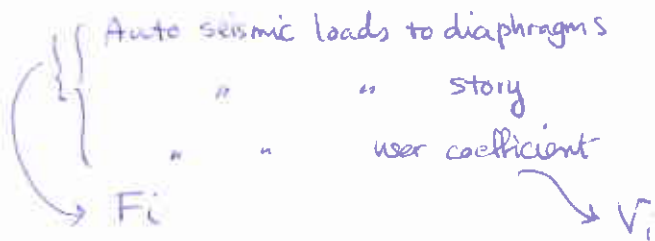 Auto seismic loads to diaphragms
" " story
" " user coefficient
Fi
Vi